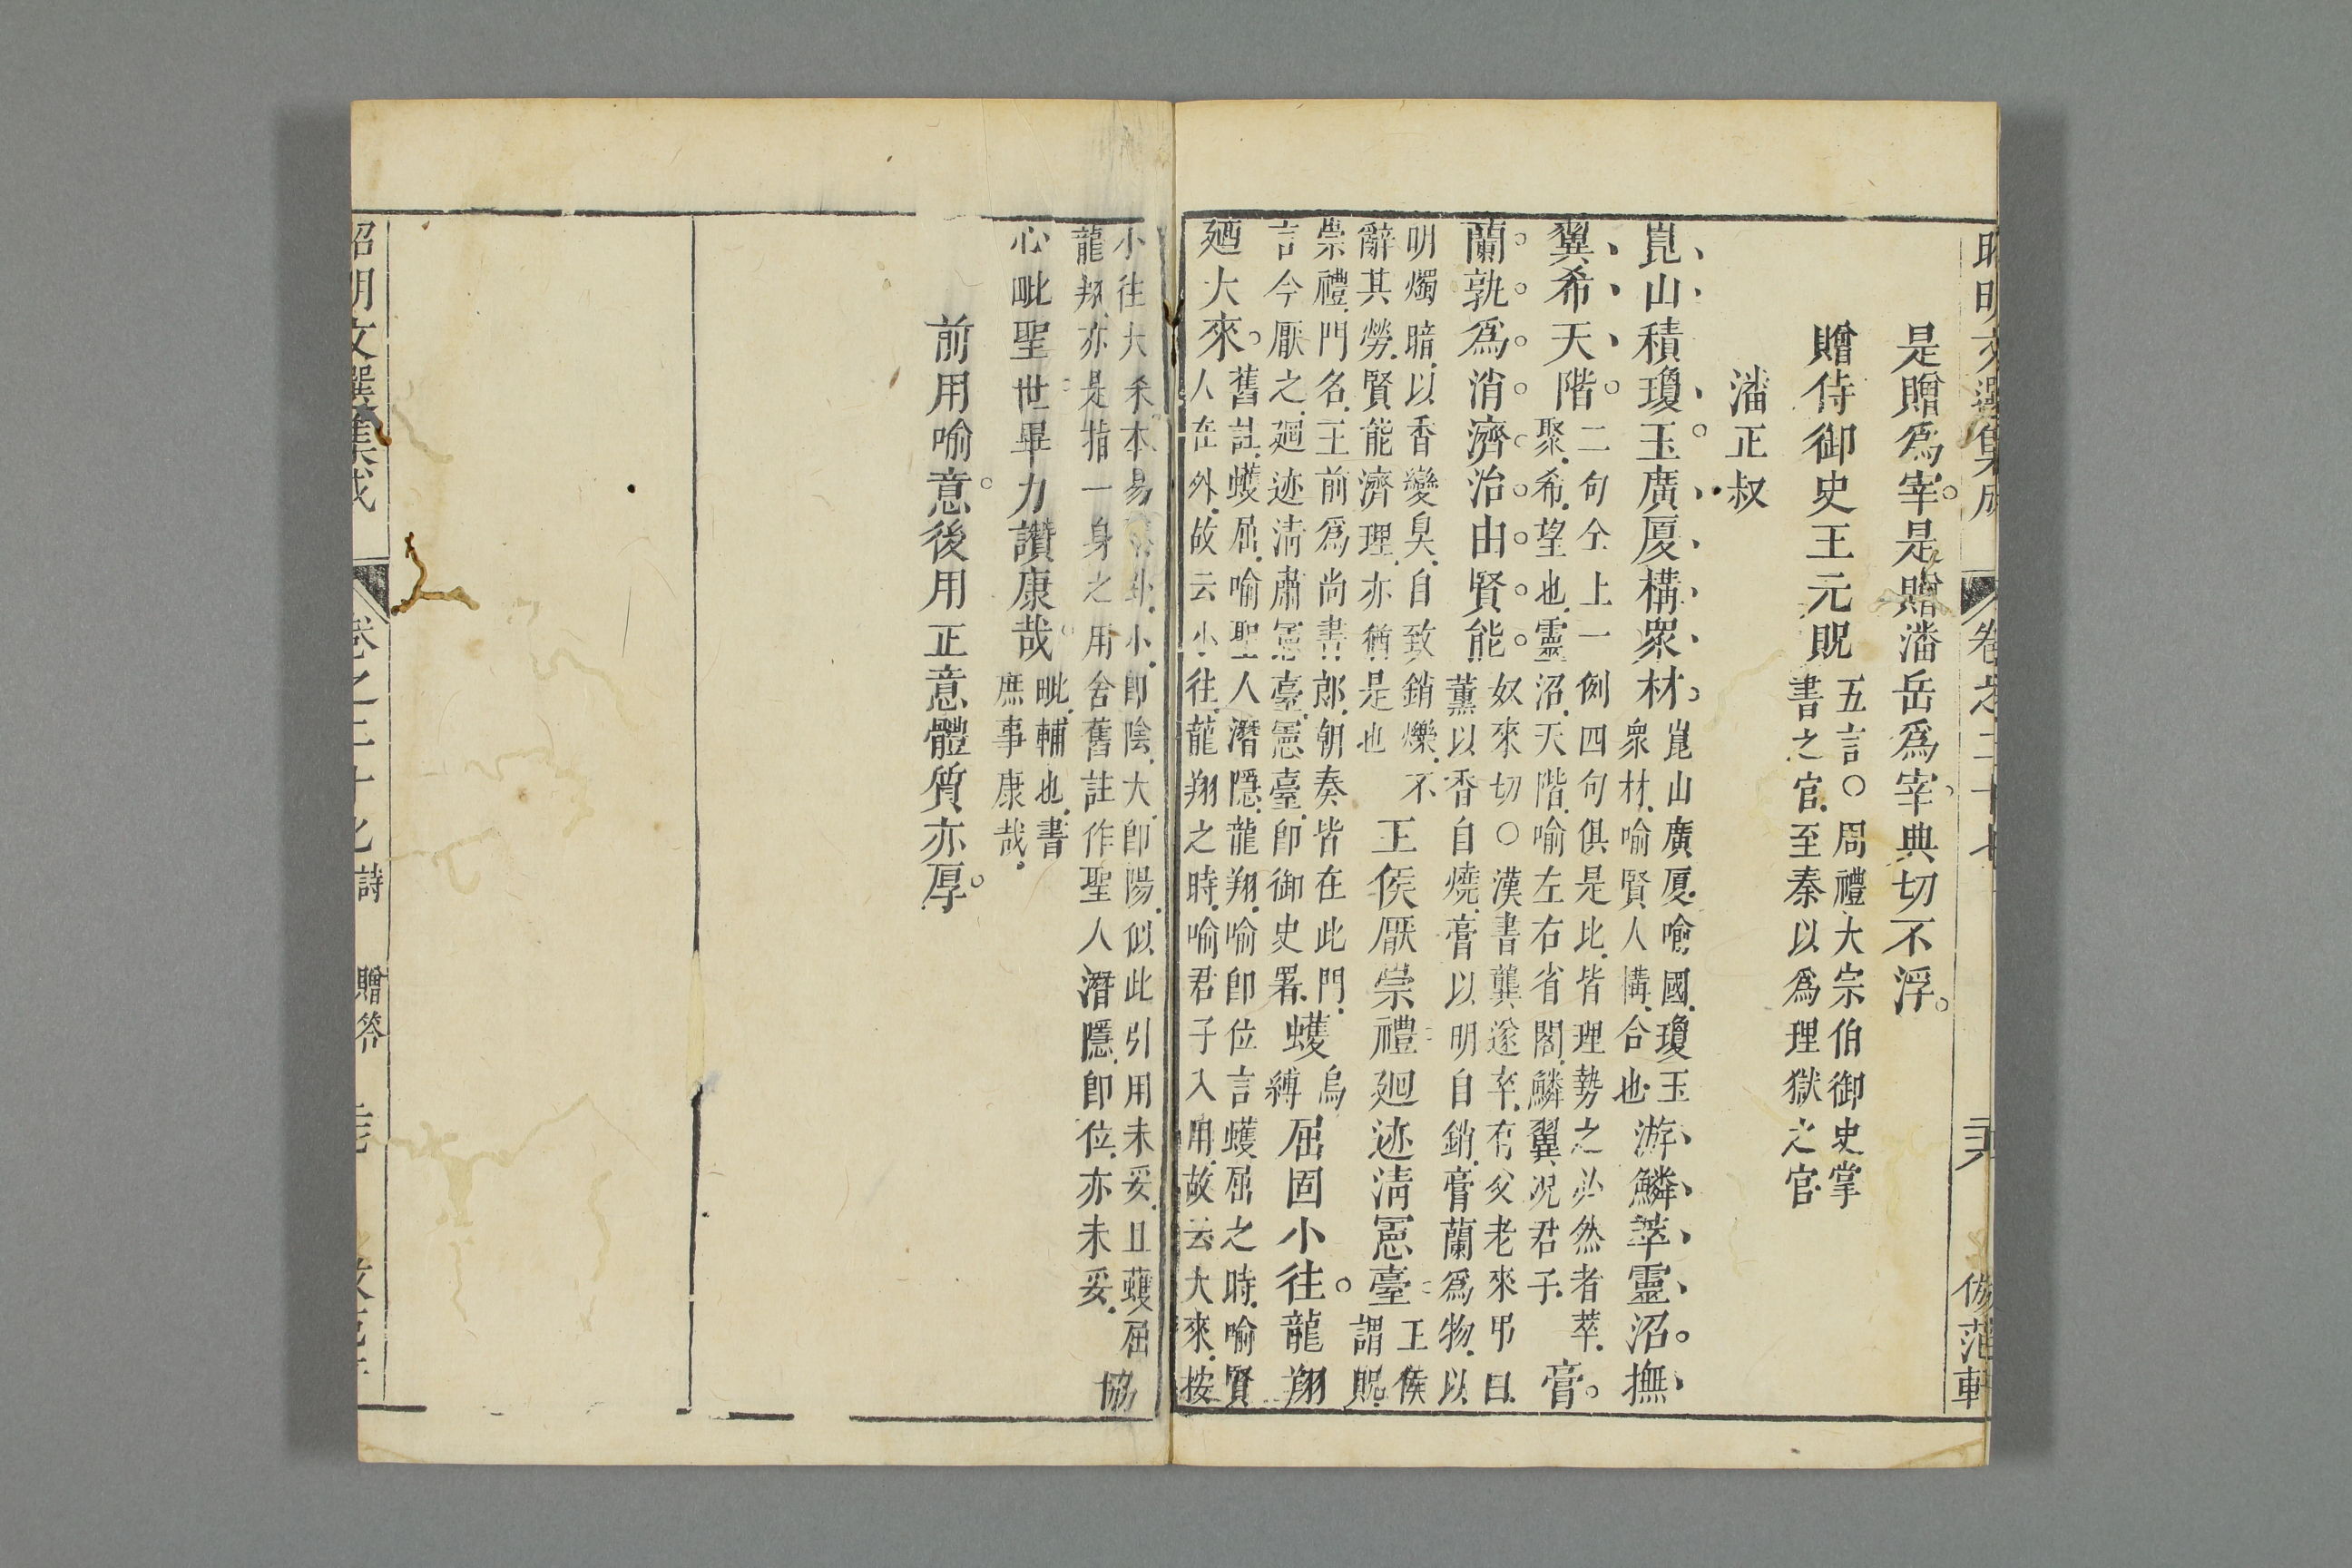 昭明文選集成 卷之二十七 倣范軒
是贈爲宰是贈潘岳爲宰典切不浮
贈侍御史王元貺五言○周禮大宗伯御史掌
書之官至秦以爲理獄之官
潘正叔
崑山積瓊玉廣厦構衆材崑山廣厦喻國瓊玉
衆材喻賢人構合也游鱗萃靈沼撫
翼希天階二句仝上一例四句俱是比皆理勢之必然者萃
聚希望也靈沼天階喻左右省閣鱗翼况君子膏
蘭孰爲消濟治由賢能奴來切○漢書龔遂卒有父老來弔曰
薰以香自燒膏以明自銷膏蘭爲物以
明燭暗以香變臭自致銷爍不
辭其勞賢能濟理亦猶是也王侯厭崇禮廻迹清憲臺王侯
謂貺
崇禮門名王前爲尚書郎朝奏皆在此門
言今厭之廻迹清肅憲臺憲臺即御史署蠖烏
縛屈固小往龍翔
廼大來舊註蠖屈喻聖人潛隱龍翔喻即位言蠖屈之時喻賢
人在外故云小往龍翔之時喻君子入用故云大來按
小往大來本易卦小即陰大即陽似此引用未妥且蠖屈
龍翔亦是指一身之用舍舊註作聖人潛隱即位亦未妥協
心毗聖世畢力讚康哉毗輔也書
庶事康哉
前用喻意後用正意體質亦厚
昭明文選集成 卷之二十七 詩 贈答